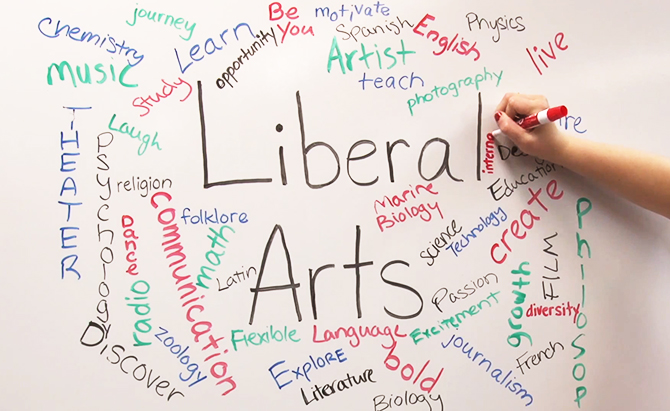 journey
Be
You
motivate
Chemistry
Learn
opportunity
Spanish
English
Physics
live
music
Study
Artist
teach
photography
Laugh
THEATER
Psychology
Liberal
interna
Education
religion
Dance
communication
folklore
math
Marine
Biology
create
science
Technology
Latin
Arts
radio
Passion
growth
FILM
diversity
Flexible
Language
Excitement
Discover
zoology
Explore
Literature
bold
Biology
journalism
French
PhilosoP